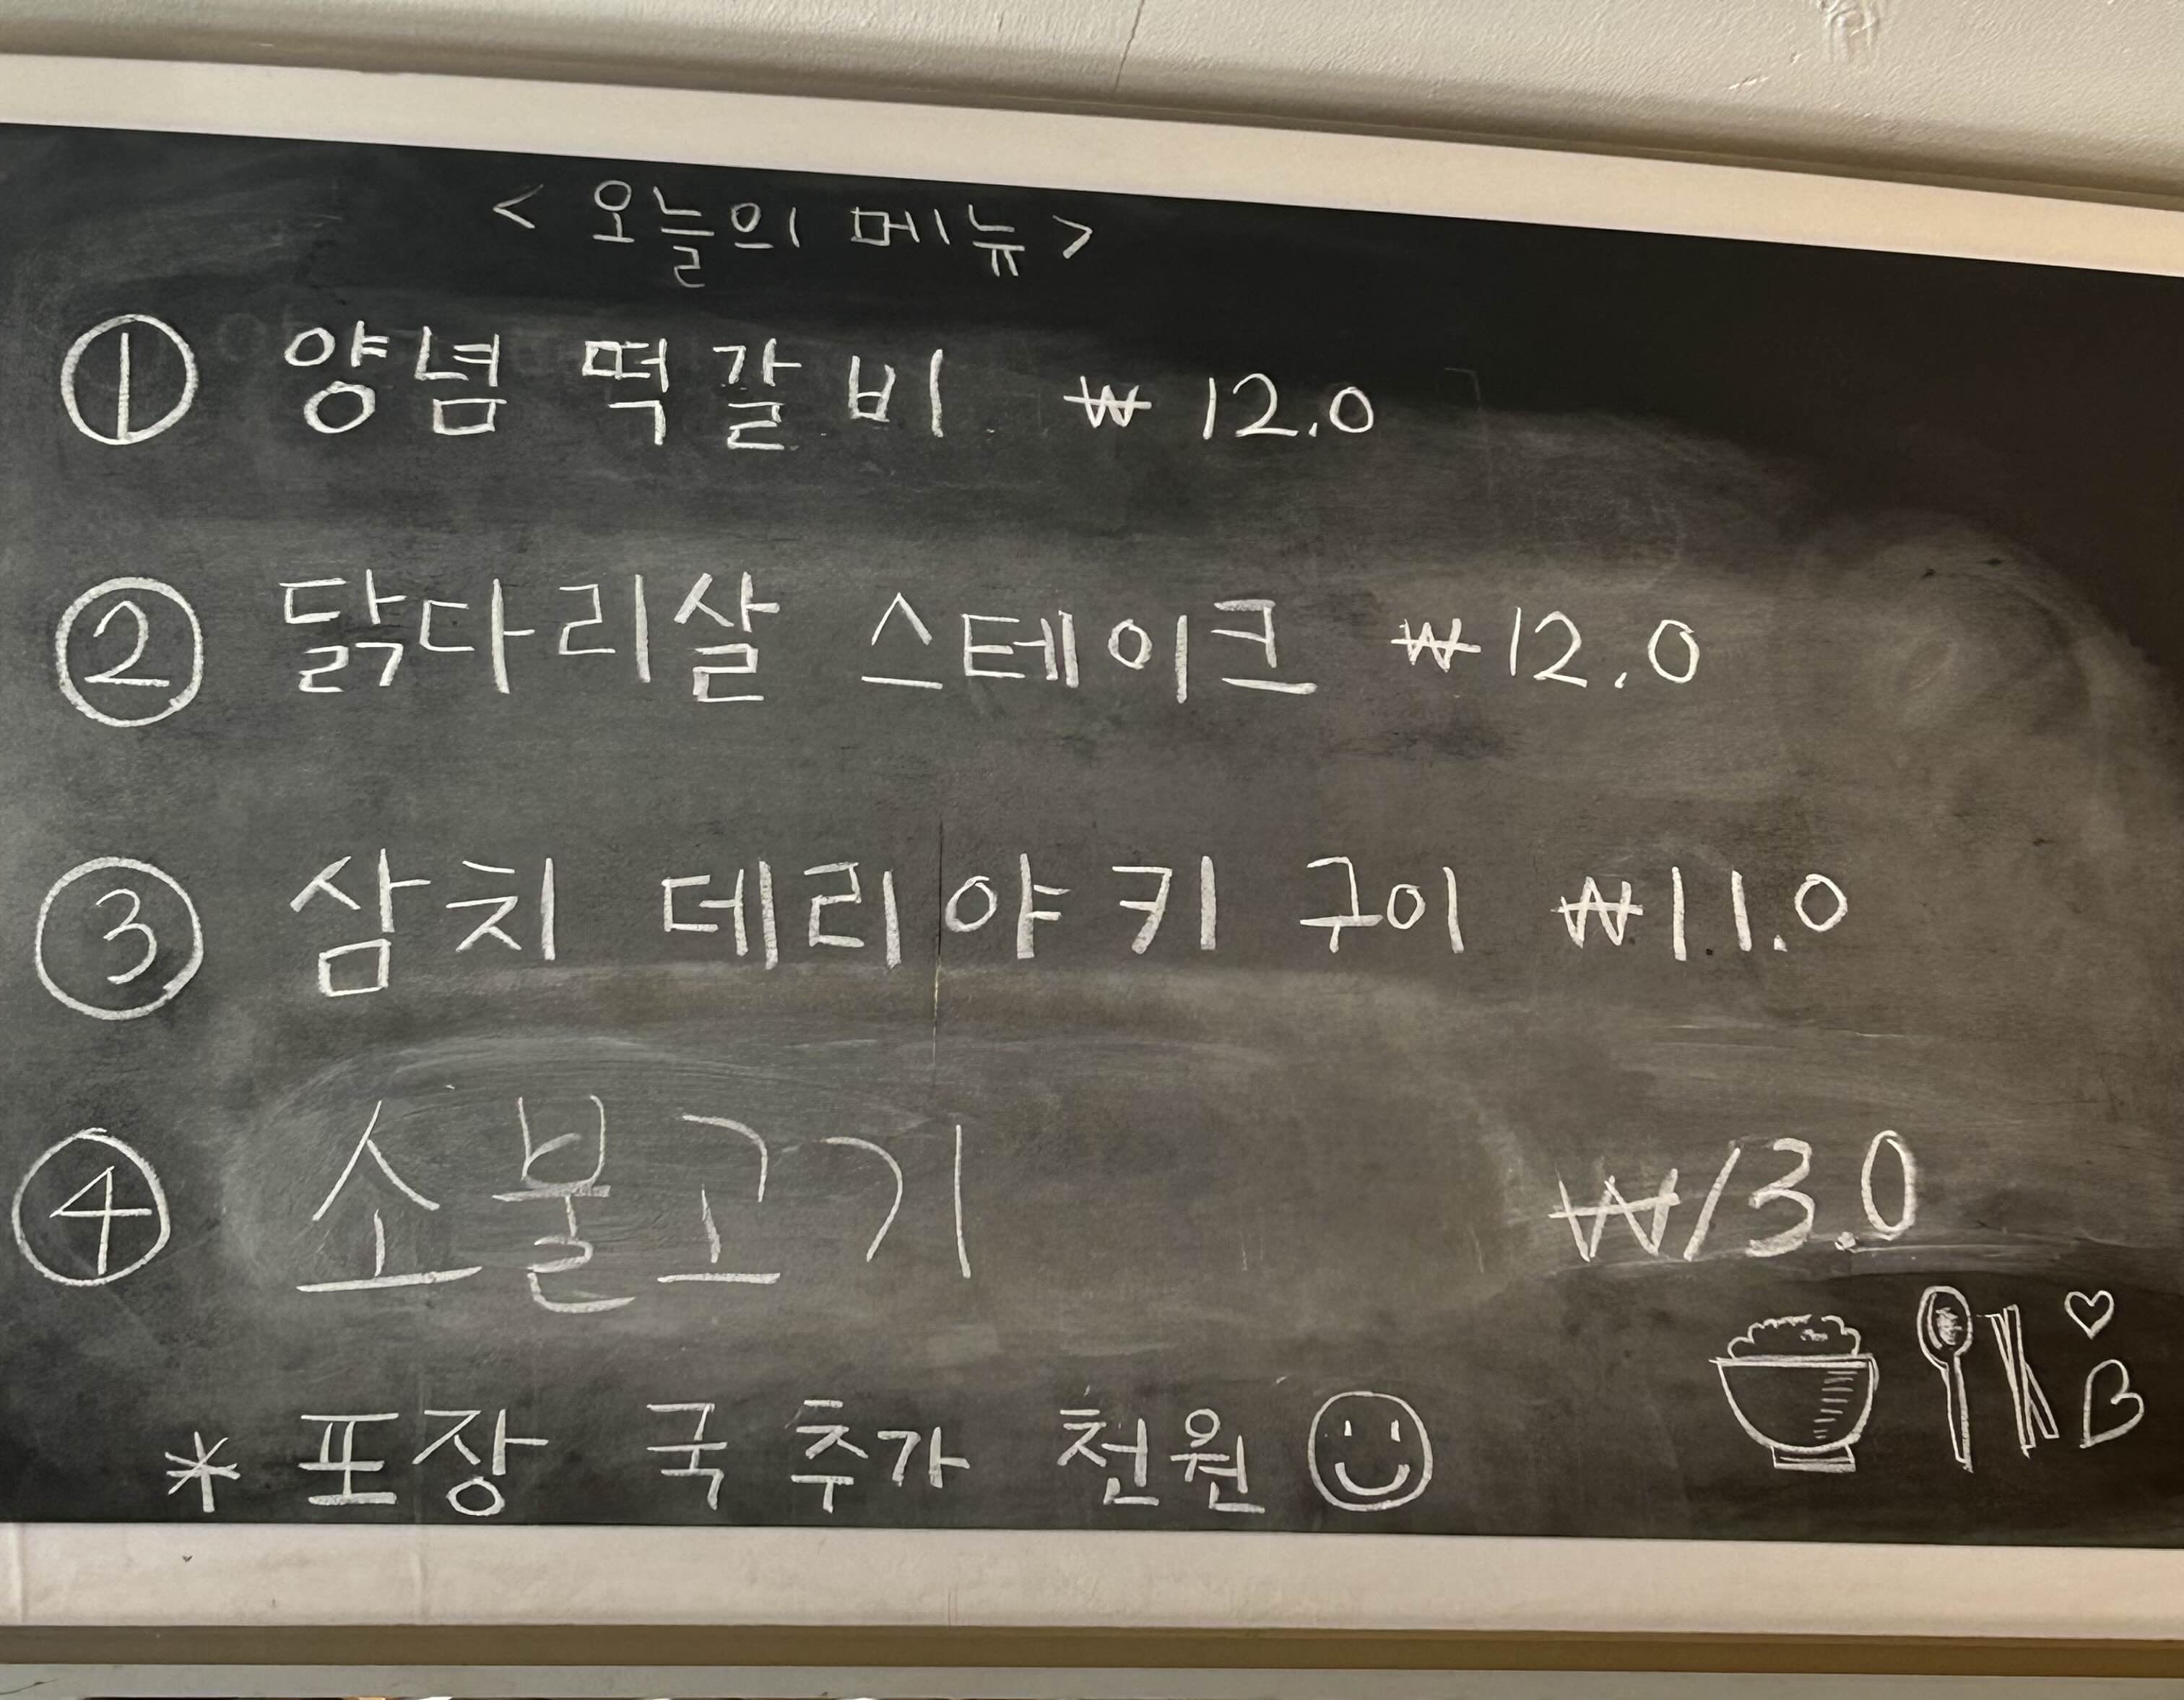 < 오늘의 메뉴 >
① 양념 떡갈비 ₩ 12.0
② 닭다리살 스테이크 ₩12.0
③ 삼치 데리야키 구이 ₩11.0
④ 소불고기 ₩13.0
* 포장 국 추가 천원